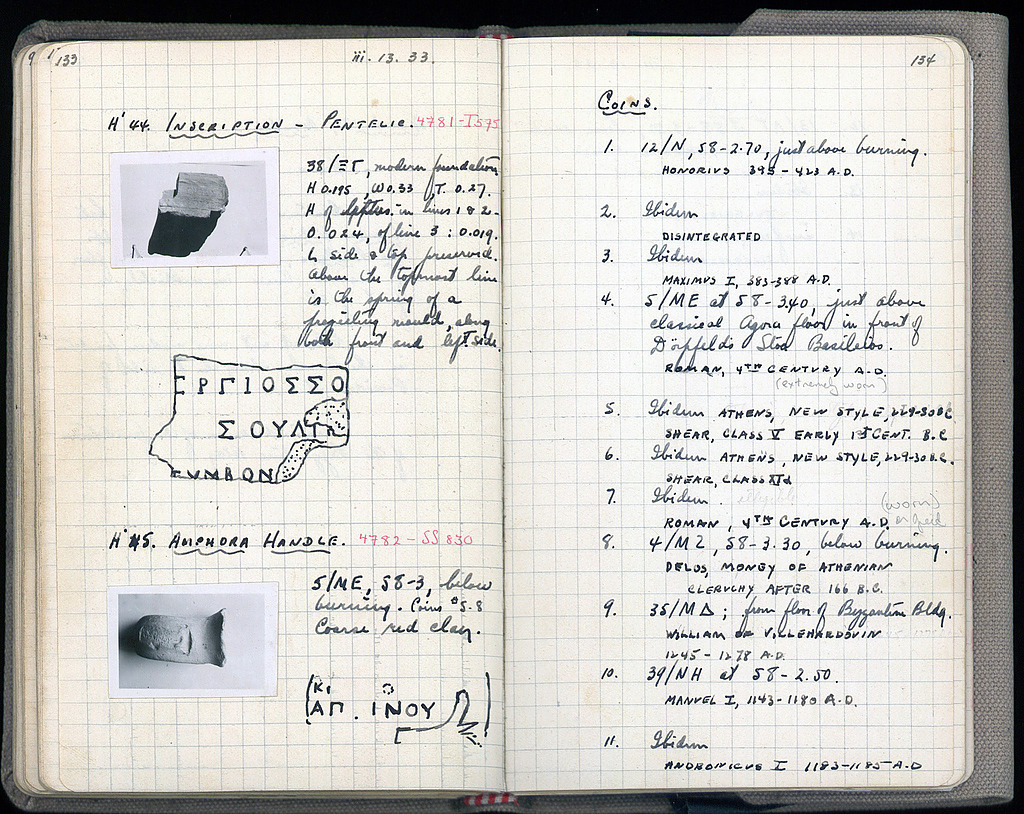 133
iii. 13. 33.
H' 44. INSCRIPTION - PENTELIC. 4781-I 575
38/ΞΓ, modern foundation
H 0.195, W 0.33, T. 0.27.
H of letters in lines 1 & 2-
0.024, of line 3: 0.019.
L side & top preserved.
Above the topmost line
is the spring of a
projecting mould, along
both front and left side.
ΕΡΓΙΟΣΣΟ
ΣΟΥΛ
ΣΥΜΒΟΝ
H' 45. AMPHORA HANDLE. 4782-SS 830
5/ME, 58-3, below
burning. Coins #5-8
Coarse red clay.
ΚΙ
ΑΠ. ΙΝΟΥ
134
COINS.
1. 12/N, 58-2.70, just above burning.
HONORIUS 395-423 A.D.
2. Ibidem
DISINTEGRATED
3. Ibidem
MAXIMUS I, 383-388 A.D.
4. 5/ME at 58-3.40, just above
classical Agora floor in front of
Dörpfeld's Stoa Basileios.
ROMAN, 4TH CENTURY A.D.
(extremely worn)
5. Ibidem ATHENS, NEW STYLE, 229-30 B.C.
SHEAR, CLASS V EARLY 1ST CENT. B.C
6. Ibidem ATHENS, NEW STYLE, 229-30 B.C.
SHEAR, CLASS
7. Ibidem. illegible (worn)
ROMAN, 4TH CENTURY A.D.
8. 4/ΜΖ, 58-3.30, below burning.
DELOS, MONEY OF ATHENIAN
CLERUCHY AFTER 166 B.C.
9. 35/ΜΔ; from floor of Byzantine Bldg.
WILLIAM OF VILLEHARDOUIN
1245-1278 A.D.
10. 39/NH at 58-2.50.
MANUEL I, 1143-1180 A.D.
11. Ibidem
ANDRONICUS I 1183-1185 A.D